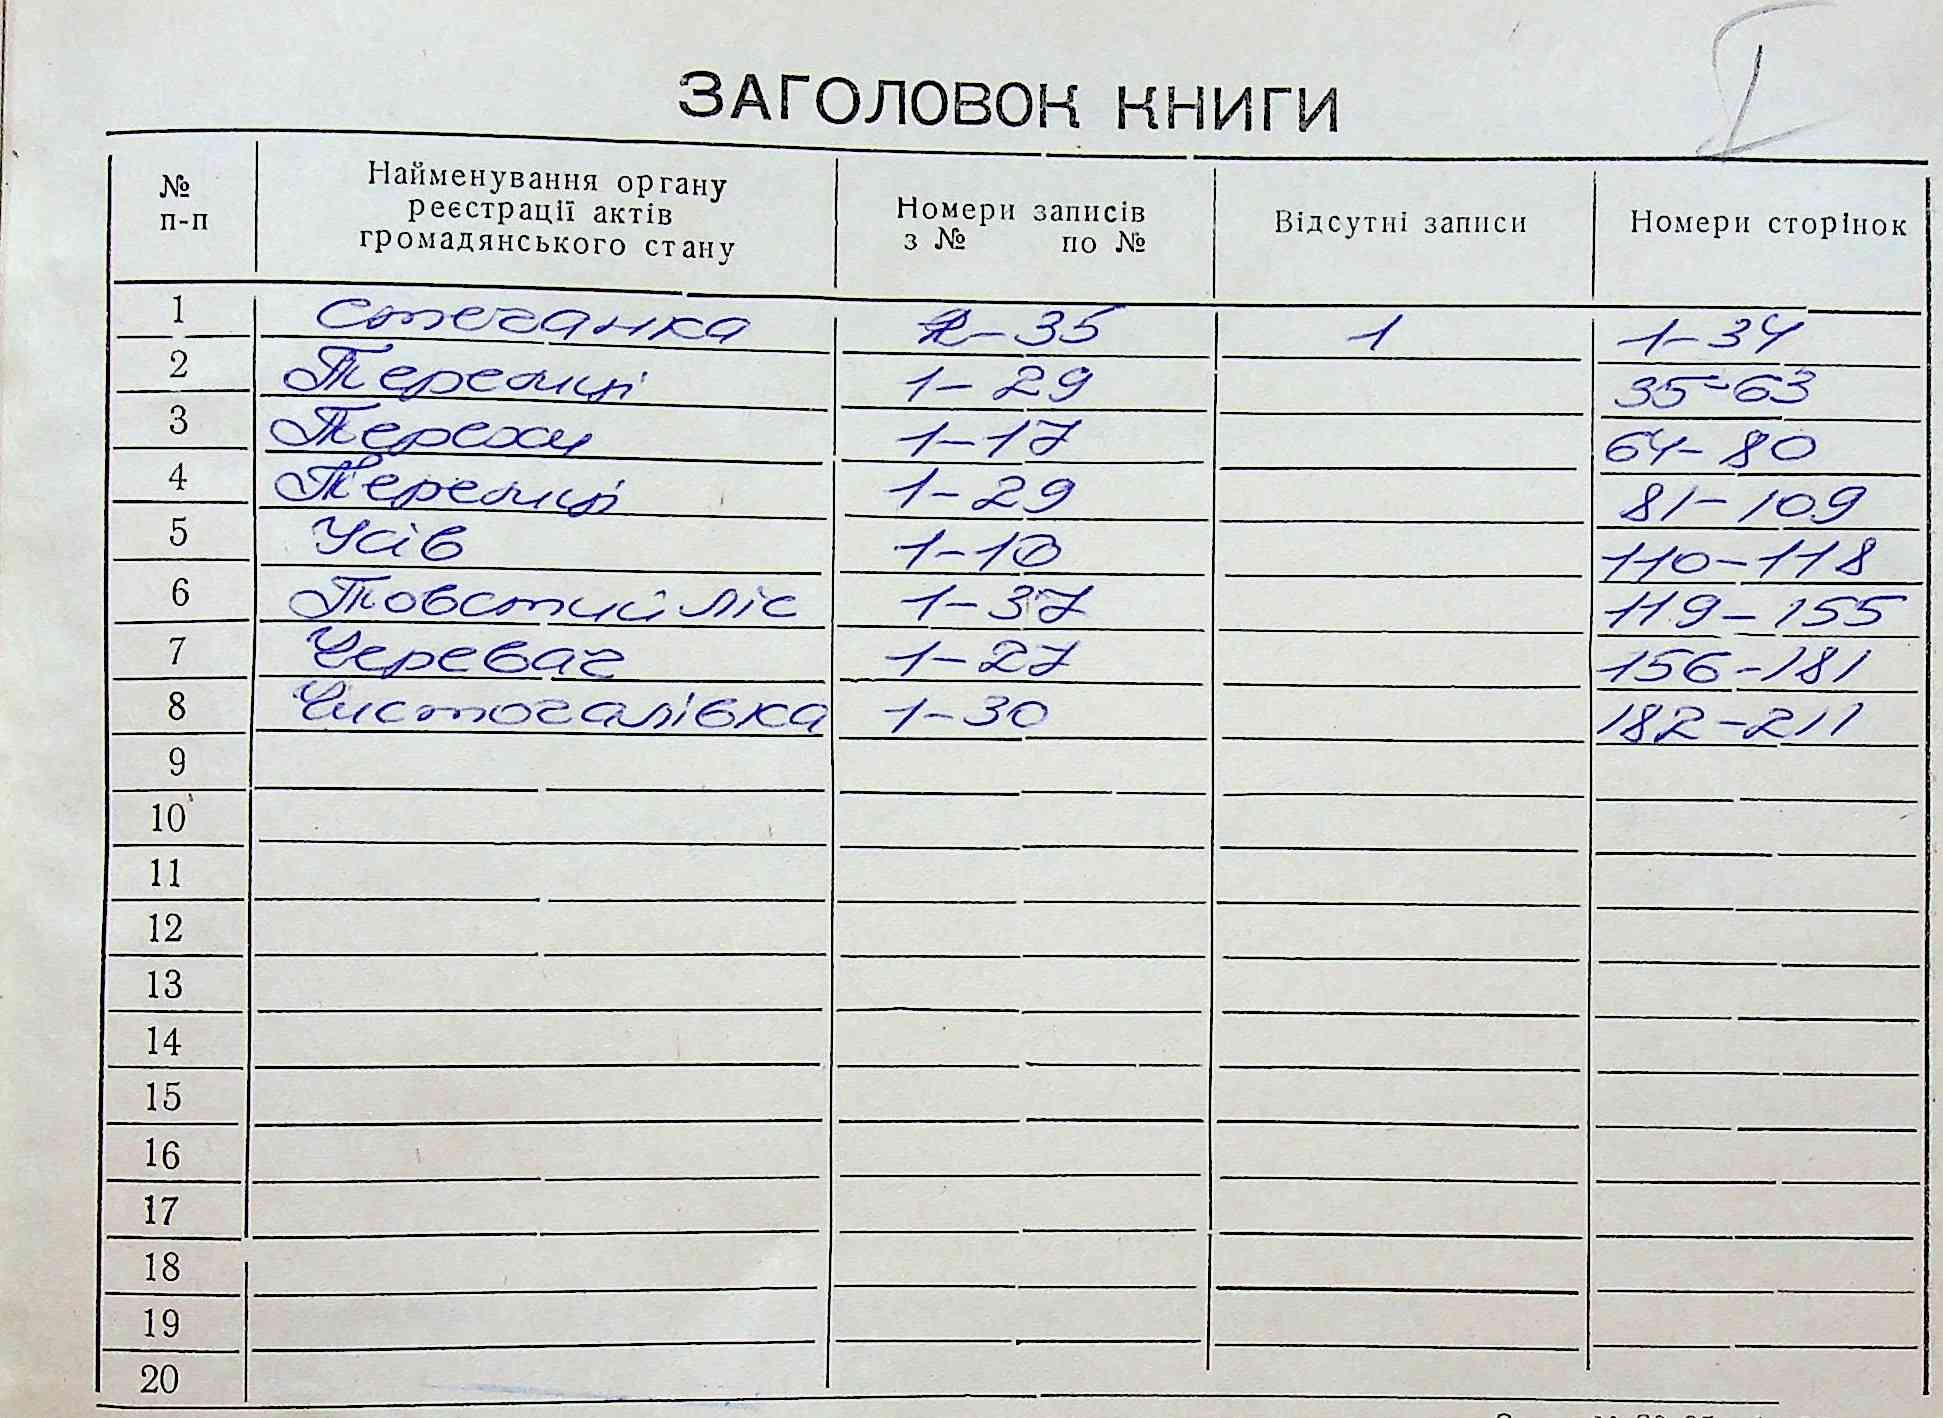 I
ЗАГОЛОВОК КНИГИ
№ п-п Найменування органу реєстрації актів громадянського стану Номери записів з № по № Відсутні записи Номери сторінок
1 Стечанка 2-35 1 1-34
2 Теремці 1-29 35-63
3 Терехи 1-17 64-80
4 Теремці 1-29 81-109
5 Усів 1-10 110-118
6 Товстий ліс 1-37 119-155
7 Черевач 1-27 156-181
8 Чистогалівка 1-30 182-211
9
10
11
12
13
14
15
16
17
18
19
20